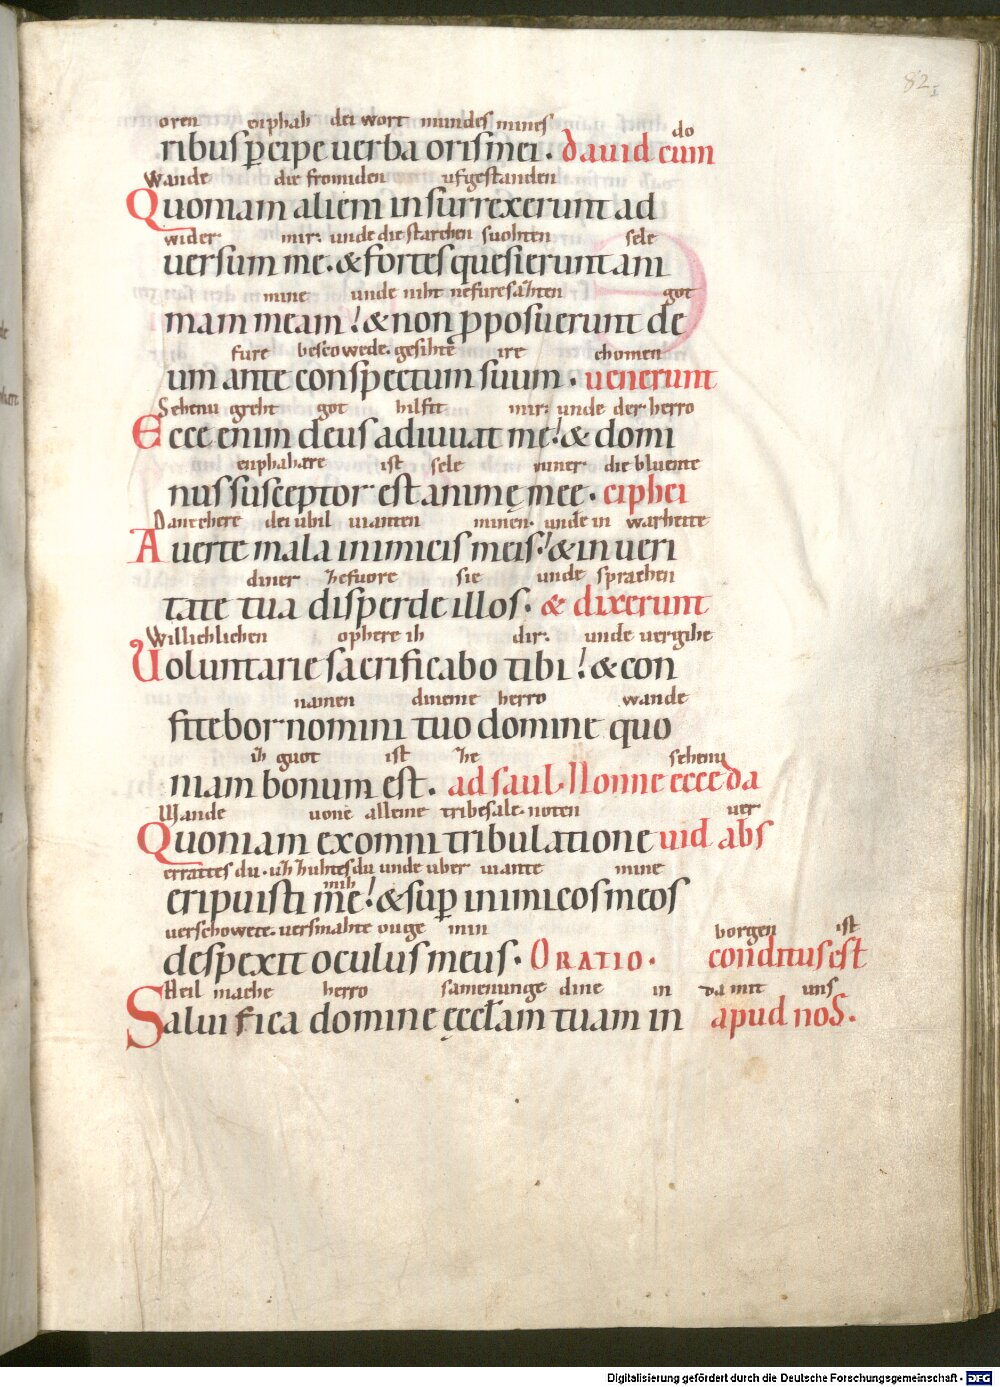 82
oren enphah dei wort mundes mines do
ribus p̄cipe uerba oris mei. dauid cum
Wande die fromiden ufgestanden
Quoniam alieni insurrexerunt ad
wider mir. unde die starchen suohten sele
uersum me. & fortes quesierunt ani
mine unde niht nefuresahten got
mam meam! & non pposuerunt de
fure bescowede. gesihte ire chomen
um ante conspectum suum. uenerunt
Sehenu greht got hilfit mir. unde der herro
Ecce enim deus adiuuat me! & domi
enphahære ist sele miner die bluente
nus susceptor est animę meę. ciphei
Dantchere dei ubil uianten minen. unde in warheite
Auerte mala inimicis meis! & in ueri
diner zefuore sie unde sprachen
tate tua disperde illos. & dixerunt
Willichlichen ophere ih dir. unde uergihe
Uoluntarie sacrificabo tibi! & con
namen dineme herro wande
fitebor nomini tuo domine quo
guot ist ze sehenu
niam bonum est. ad saul. Nonne ecce da
Wande uone alleine tribesale. noten uer
Quoniam ex omni tribulatione uid abs
errattes du. unde uber uiante mine
mih
eripuisti me! & sup inimicos meos
uerschowete. uersmahte ouge min borgen ist
despexit oculus meus. ORATIO. conditus est
Heil mache herro samenunge dine in da mit uns
Saluifica domine ęccłam tuam in apud nos.
Digitalisierung gefördert durch die Deutsche Forschungsgemeinschaft - DFG